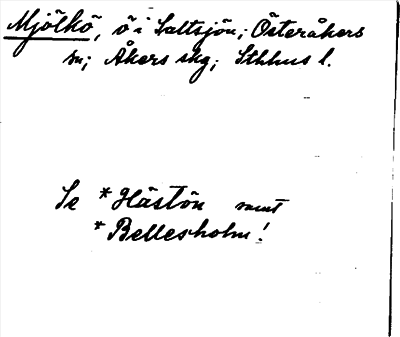 Mjölkö, ö i Saltsjön; Österåkers
sn; Åkers skg; Sthlms l.
Se *Hästön samt
*Bellesholm!